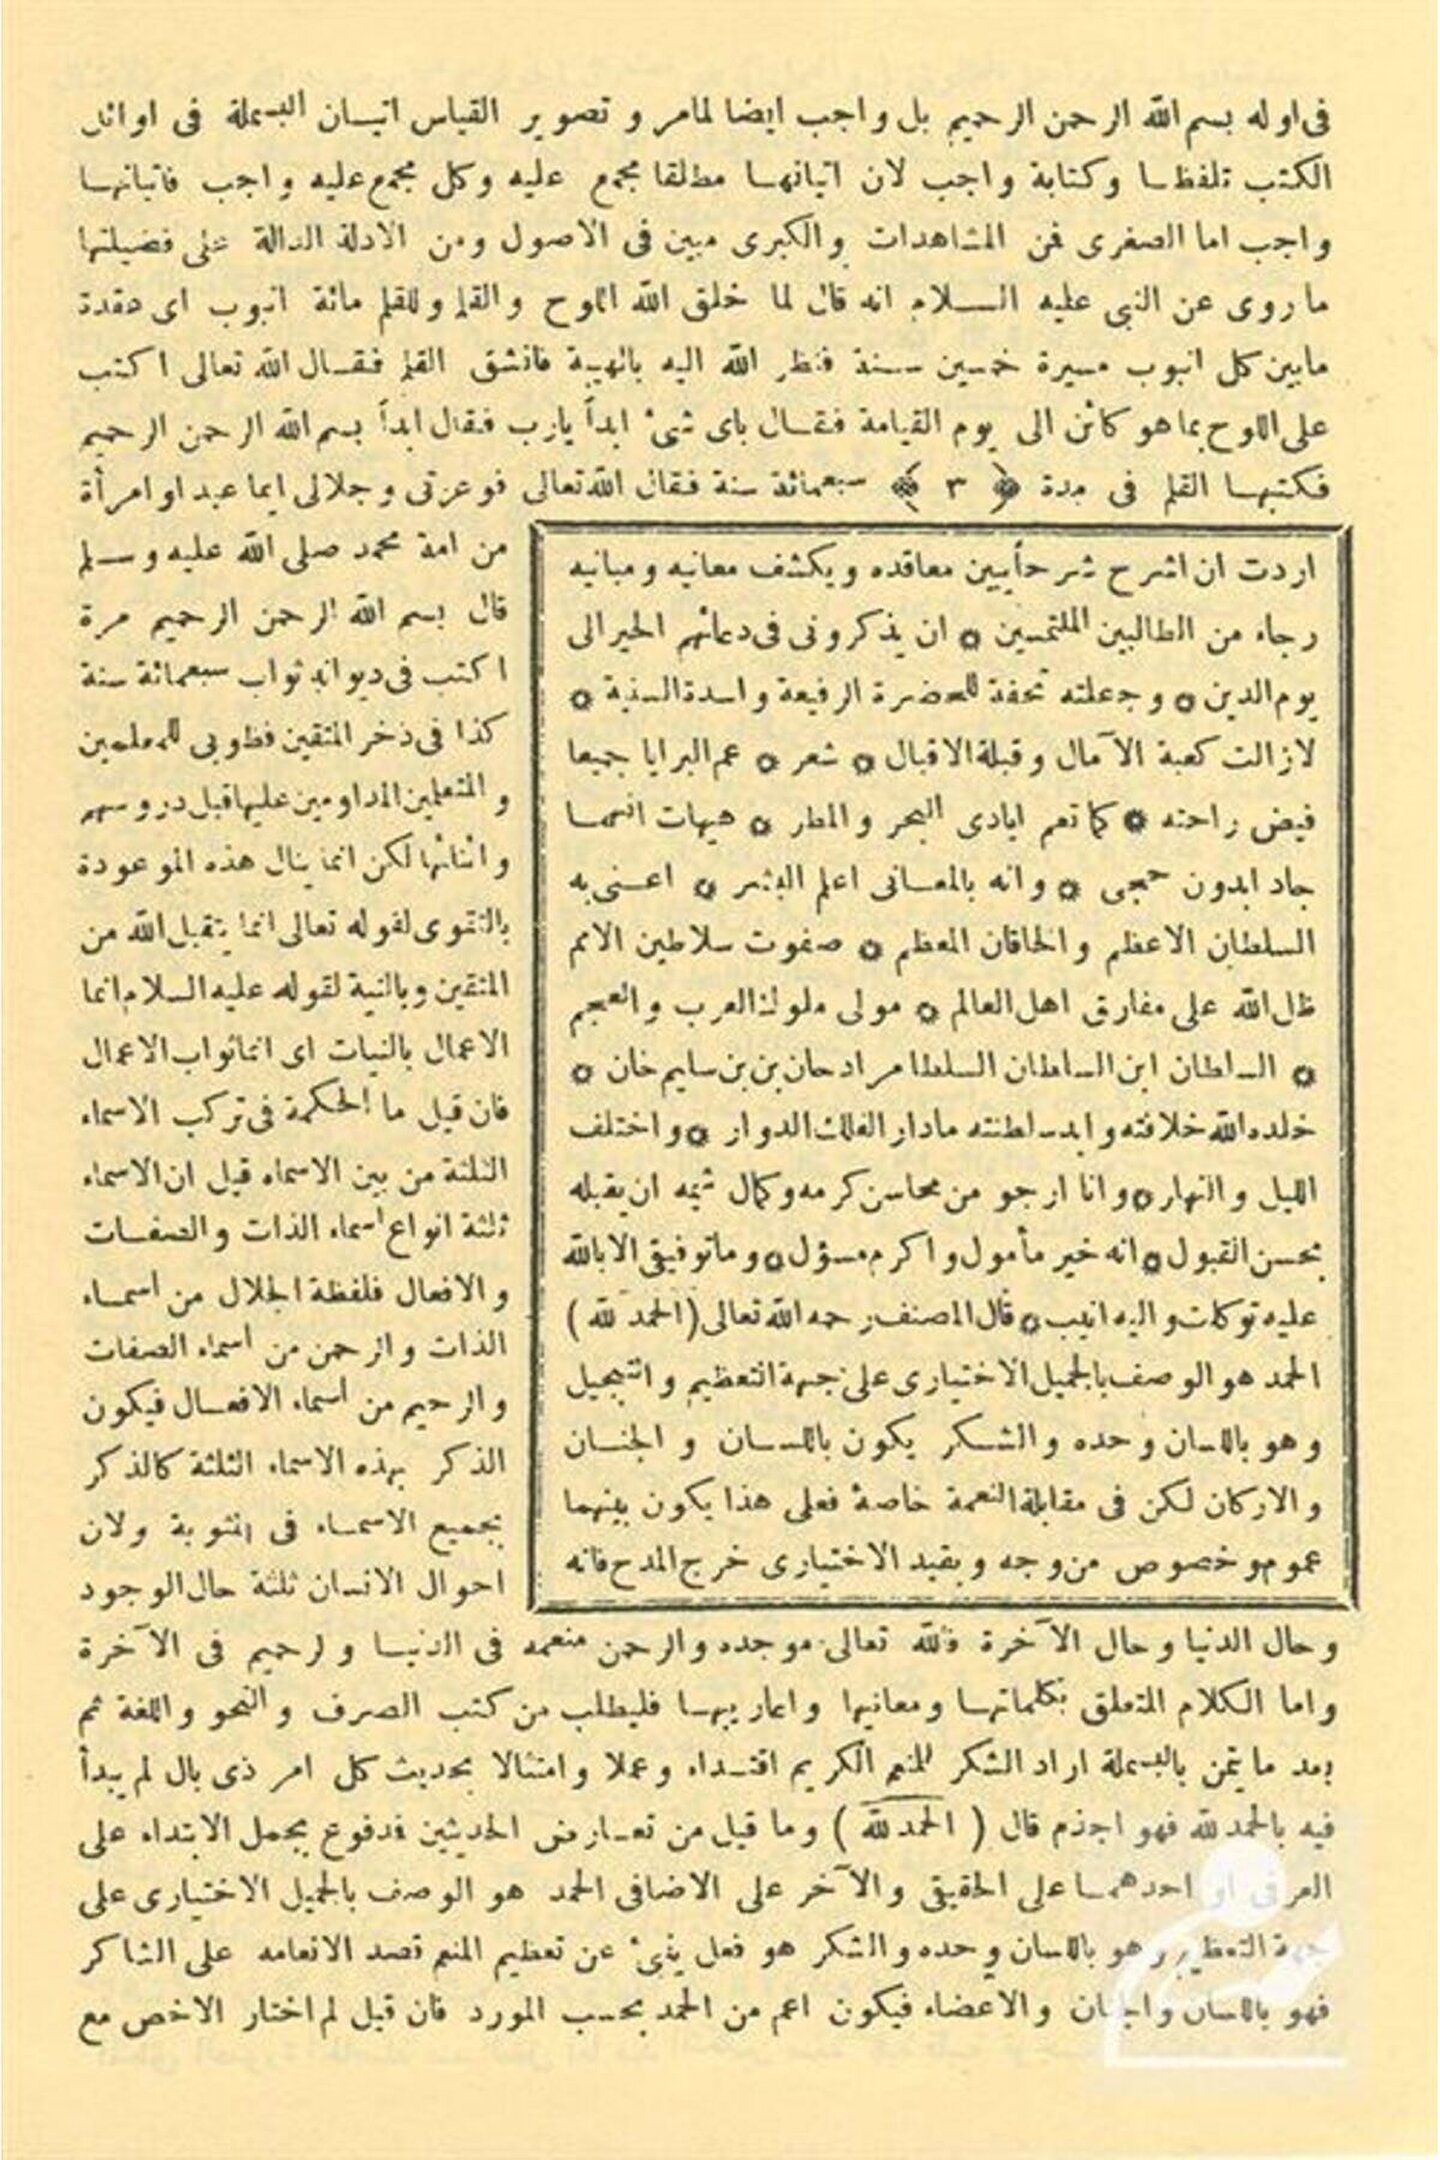 فى اوله بسم الله الرحمن الرحيم بل واجب ايضا لمامر و تصوير القياس اتيان البسملة فى اوائل
الكتب تلفظا وكتابة واجب لان اتيانها مطلقا مجمع عليه وكل مجمع عليه واجب فاتيانها
واجب اما الصغرى فمن المشاهدات والكبرى مبين فى الاصول ومن الادلة الدالة على فضيلتها
ماروى عن النبى عليه السلام انه قال لما خلق الله اللوح والقلم وللقلم مائة انبوب اى عقدة
مابين كل انبوب مسيرة خمسين سنة فنظر الله اليه بالهيبة فانشق القلم فقال الله تعالى اكتب
على اللوح بما هو كائن الى يوم القيامة فقال باى شئ ابدأ يارب فقال ابدأ بسم الله الرحمن الرحيم
فكتبها القلم فى مدة ﴿ ٣ ﴾ سبعمائة سنة فقال الله تعالى فوعزتى وجلالى ايما عبد او امرأة
من امة محمد صلى الله عليه وسلم
قال بسم الله الرحمن الرحيم مرة
اكتب فى ديوانه ثواب سبعمائة سنة
كذا فى ذخر المتقين فطوبى للمعلمين
والمتعلمين المداومين عليها قبل دروسهم
واثنائها لكن انما ينال هذه الموعودة
بالتقوى لقوله تعالى انما يتقبل الله من
المتقين وبالنية لقوله عليه السلام انما
الاعمال بالنيات اى انما ثواب الاعمال
فان قيل ما الحكمة فى تركب الاسماء
الثلثة من بين الاسماء قيل ان الاسماء
ثلثة انواع اسماء الذات والصفات
والافعال فلفظة الجلال من اسماء
الذات والرحمن من اسماء الصفات
والرحيم من اسماء الافعال فيكون
الذكر بهذه الاسماء الثلثة كالذكر
بجميع الاسماء فى المثوبة ولان
احوال الانسان ثلثة حال الوجود
اردت ان اشرح شرحأ يبين معاقده ويكشف معانيه ومبانيه
رجاء من الطالبين الملتمسين ۞ ان يذكرونى فى دعائهم الخير الى
يوم الدين ۞ وجعلته تحفة للحضرة الرفيعة والسدة السنية ۞
لازالت كعبة الآمال وقبلة الاقبال ۞ شعر ۞ عم البرايا جميعا
فيض راحته ۞ كما تعم ايادى البحر والمطر ۞ هيهات انهما
جاد ابدون حجى ۞ وانه بالمعانى اعلم البشر ۞ اعنى به
السلطان الاعظم والخاقان المعظم ۞ صفوت سلاطين الامم
ظل الله على مفارق اهل العالم ۞ مولى ملوك العرب والعجم
۞ السلطان ابن السلطان السلطا مراد حان بن بن سليم خان ۞
خلد الله خلافته وابد سلطنته مادار الفلك الدوار ۞ واختلف
الليل والنهار ۞ وانا ارجو من محاسن كرمه وكمال شيمه ان يقبله
بحسن القبول ۞ انه خير مأمول واكرم مسؤل ۞ وماتوفيقى الا بالله
عليه توكلت واليه انيب ۞ قال المصنف رحمه الله تعالى (الحمد لله)
الحمد هو الوصف بالجميل الاختيارى على جهة التعظيم والتبجيل
وهو باللسان وحده والشكر يكون باللسان والجنان
والاركان لكن فى مقابلة النعمة خاصة فعلى هذا يكون بينهما
عموم وخصوص من وجه وبقيد الاختيارى خرج المدح فانه
وحال الدنيا وحال الآخرة فالله تعالى موجده والرحمن منعمه فى الدنيا ولرحيم فى الآخرة
واما الكلام المتعلق بكلماتها ومعانيها واعاريبها فليطلب من كتب الصرف والنحو واللغة ثم
بعد ما تيمن بالبسملة اراد الشكر للمنعم الكريم اقتداء وعملا وامتثالا بحديث كل امر ذى بال لم يبدأ
فيه بالحمد لله فهو اجذم قال ( الحمد لله ) وما قيل من تعارض الحديثين فدفوع بحمل الابتداء على
العرفى او احدهما على الحقيقى والآخر على الاضافى الحمد هو الوصف بالجميل الاختيارى على
جهة التعظيم وهو باللسان وحده والشكر هو فعل ينبئ عن تعظيم المنعم قصد الانعامه على الشاكر
فهو باللسان والجنان والاعضاء فيكون اعم من الحمد بحسب المورد فان قيل لم اختار الاخص مع